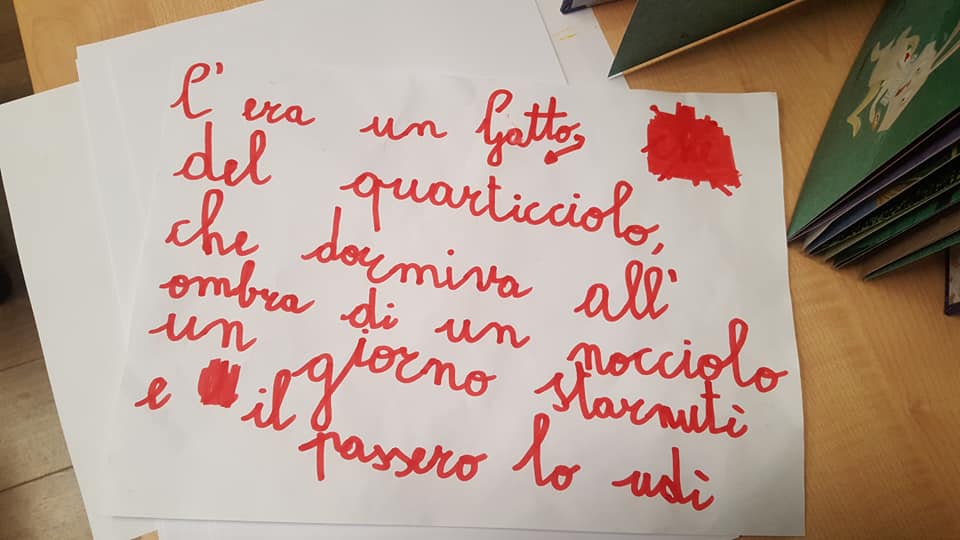 C'era un Gatto,
del quarticciolo,
che dormiva all'
ombra di un nocciolo
un giorno starnutì
e il passero lo udì